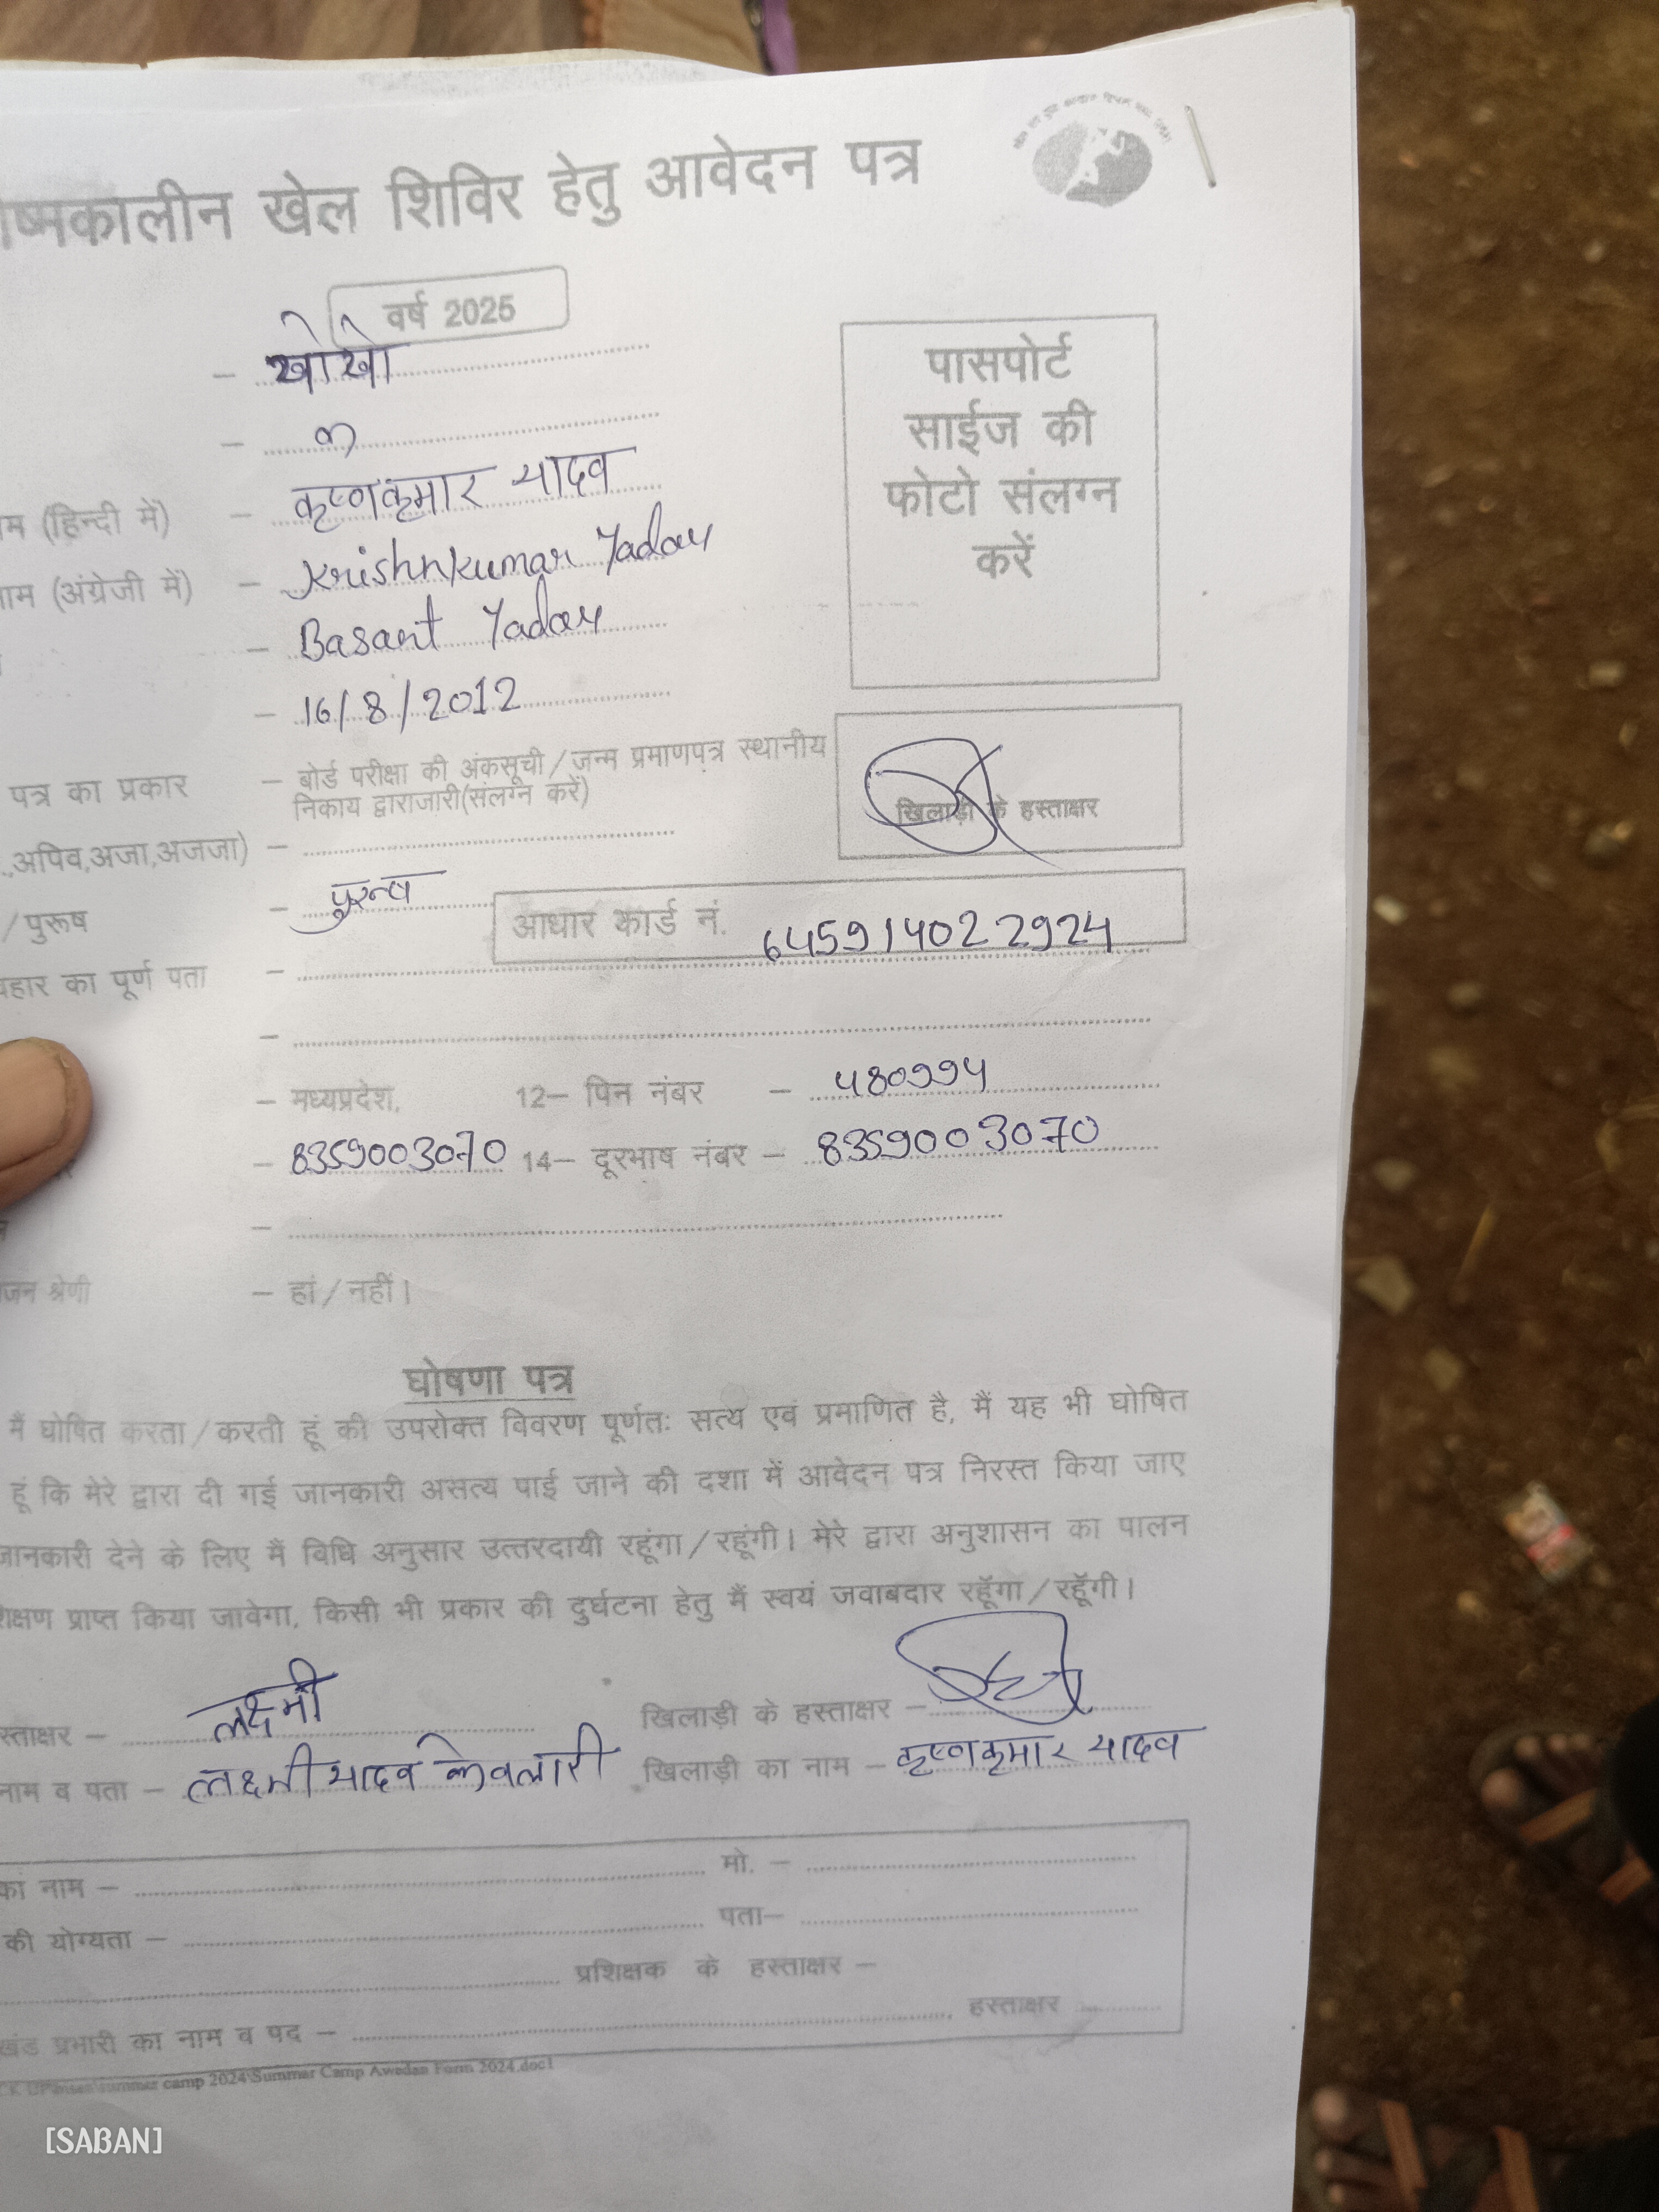 ष्मकालीन खेल शिविर हेतु आवेदन पत्र
वर्ष 2025
– खोखो
–
म (हिन्दी में) – कृष्णकुमार यादव
नाम (अंग्रेजी में) – Krishnkumar Yadav
– Basant Yadav
– 16/8/2012
पासपोर्ट
साईज की
फोटो संलग्न
करें
पत्र का प्रकार – बोर्ड परीक्षा की अंकसूची/जन्म प्रमाणपत्र स्थानीय
निकाय द्वाराजारी(संलग्न करें)
खिलाड़ी के हस्ताक्षर
.,अपिव,अजा,अजजा) –
/पुरूष – पुरुष
आधार कार्ड नं. 645914022924
वहार का पूर्ण पता –
–
– मध्यप्रदेश, 12– पिन नंबर – 480994
– 8359003070 14– दूरभाष नंबर – 8359003070
–
जन श्रेणी – हां/नहीं।
घोषणा पत्र
मैं घोषित करता/करती हूं की उपरोक्त विवरण पूर्णतः सत्य एवं प्रमाणित है, मैं यह भी घोषित
हूं कि मेरे द्वारा दी गई जानकारी असत्य पाई जाने की दशा में आवेदन पत्र निरस्त किया जाए
जानकारी देने के लिए मैं विधि अनुसार उत्तरदायी रहूंगा/रहूंगी। मेरे द्वारा अनुशासन का पालन
क्षण प्राप्त किया जावेगा, किसी भी प्रकार की दुर्घटना हेतु मैं स्वयं जवाबदार रहूॅगा/रहूॅगी।
स्ताक्षर – लक्ष्मी खिलाड़ी के हस्ताक्षर –
नाम व पता – लक्ष्मी यादव केवलारी खिलाड़ी का नाम – कृष्णकुमार यादव
का नाम – मो. –
की योग्यता – पता–
प्रशिक्षक के हस्ताक्षर –
खंड प्रभारी का नाम व पद – हस्ताक्षर
summer camp 2024\Summer Camp Awedan Form 2024.doc1
[SABAN]